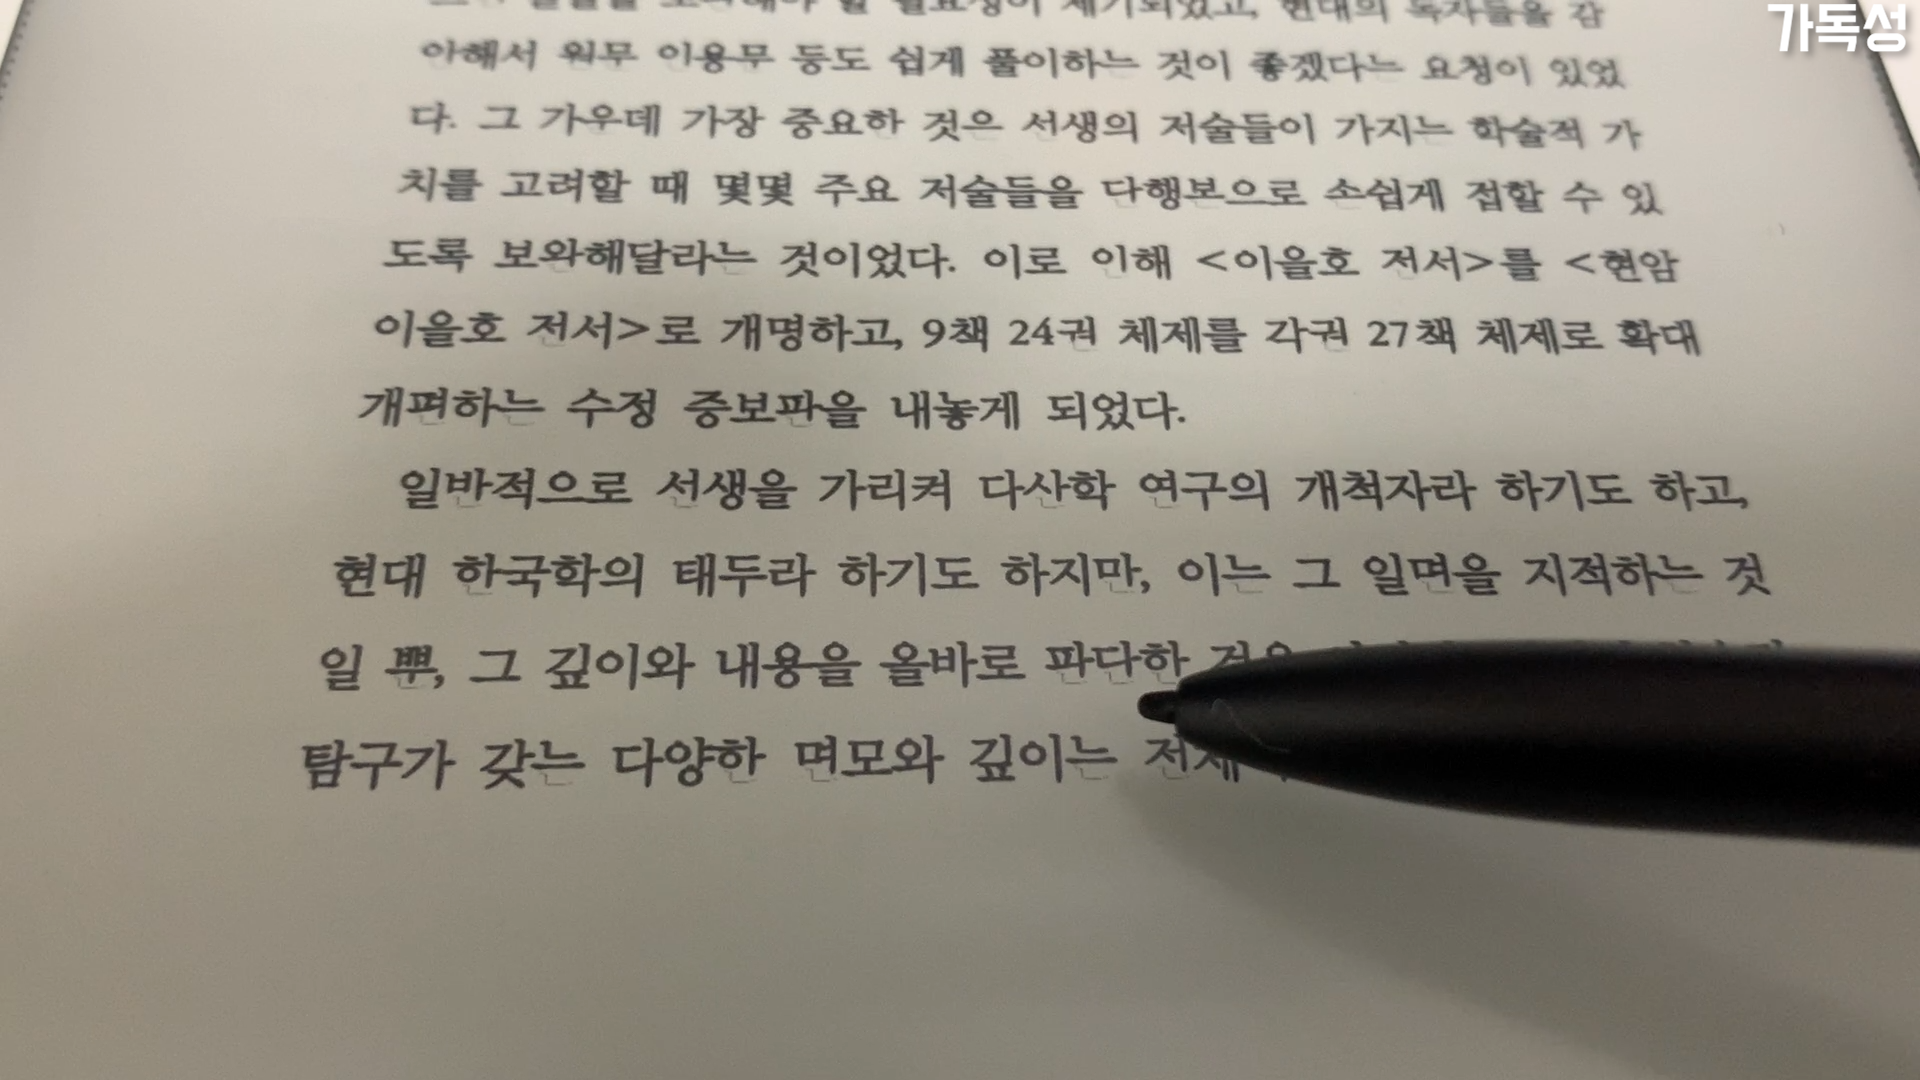 가독성
할 필요성이 제기되었고, 현대의 독자들을 감
안해서 원문 인용문 등도 쉽게 풀이하는 것이 좋겠다는 요청이 있었
다. 그 가운데 가장 중요한 것은 선생의 저술들이 가지는 학술적 가
치를 고려할 때 몇몇 주요 저술들을 단행본으로 손쉽게 접할 수 있
도록 보완해달라는 것이었다. 이로 인해 <이을호 전서>를 <현암
이을호 전서>로 개명하고, 9책 24권 체제를 각권 27책 체제로 확대
개편하는 수정 증보판을 내놓게 되었다.
일반적으로 선생을 가리켜 다산학 연구의 개척자라 하기도 하고,
현대 한국학의 태두라 하기도 하지만, 이는 그 일면을 지적하는 것
일 뿐, 그 깊이와 내용을 올바로 판단한
탐구가 갖는 다양한 면모와 깊이는 전체